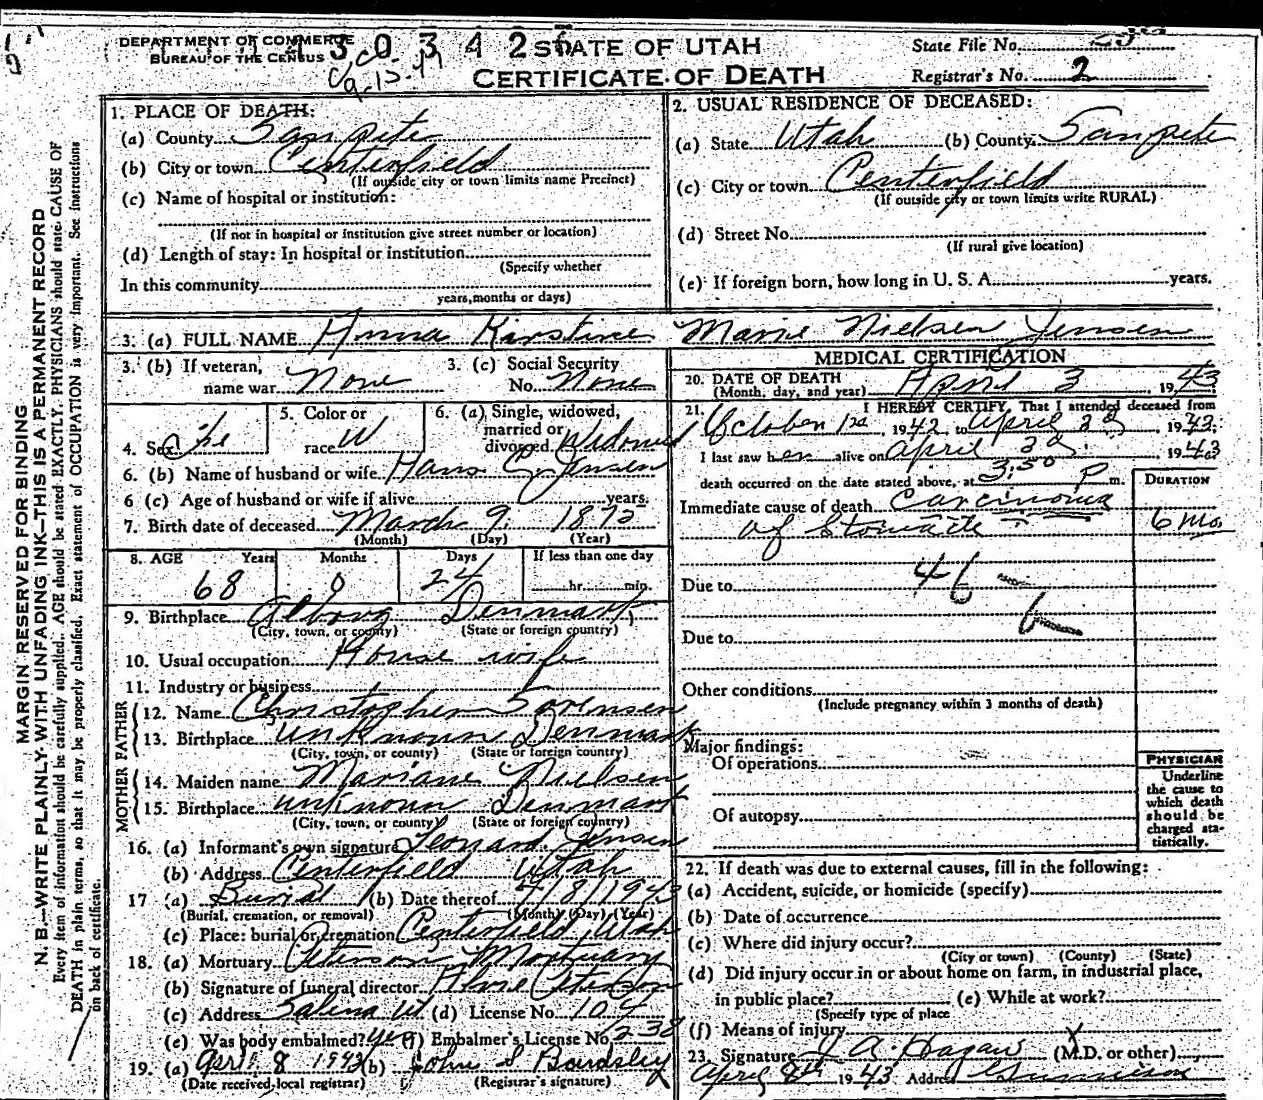 DEPARTMENT OF COMMERCE
BUREAU OF THE CENSUS
STATE OF UTAH
CERTIFICATE OF DEATH
State File No.
Registrar's No. 2
MARGIN RESERVED FOR BINDING
N. B.—WRITE PLAINLY WITH UNFADING INK—THIS IS A PERMANENT RECORD
Every item of information should be carefully supplied. AGE should be stated EXACTLY. PHYSICIANS should state CAUSE OF
DEATH in plain terms, so that it may be properly classified. Exact statement of OCCUPATION is very important. See instructions
on back of certificate.
1. PLACE OF DEATH:
(a) County Sanpete
(b) City or town Centerfield
(If outside city or town limits name Precinct)
(c) Name of hospital or institution:
(If not in hospital or institution give street number or location)
(d) Length of stay: In hospital or institution
(Specify whether
In this community
years, months or days)
2. USUAL RESIDENCE OF DECEASED:
(a) State Utah (b) County Sanpete
(c) City or town Centerfield
(If outside city or town limits write RURAL)
(d) Street No.
(If rural give location)
(e) If foreign born, how long in U. S. A. years.
3. (a) FULL NAME Anna Kirstine Marie Nielsen Jensen
3. (b) If veteran, name war None
3. (c) Social Security No. None
4. Sex
5. Color or race W
6. (a) Single, widowed, married or divorced Widowed
6. (b) Name of husband or wife Hans Jensen
6 (c) Age of husband or wife if alive years.
7. Birth date of deceased March 9, 1875
(Month) (Day) (Year)
8. AGE Years Months Days If less than one day
68 0 24 hr. min.
9. Birthplace Alborg Denmark
(City, town, or county) (State or foreign country)
10. Usual occupation House wife
11. Industry or business
FATHER
12. Name Christopher Sorensen
13. Birthplace unknown Denmark
(City, town, or county) (State or foreign country)
MOTHER
14. Maiden name Mariane Nielsen
15. Birthplace unknown Denmark
(City, town, or county) (State or foreign country)
16. (a) Informant's own signature Leonard Jensen
(b) Address Centerfield Utah
17 (a) Burial (b) Date thereof 4/8/1943
(Burial, cremation, or removal) (Month) (Day) (Year)
(c) Place: burial or cremation Centerfield, Utah
18. (a) Mortuary Peterson Mortuary
(b) Signature of funeral director
(c) Address Salina Ut (d) License No. 104
(e) Was body embalmed? yes (f) Embalmer's License No. 238
19. (a) April 8 1943 (b) John S Bardsley
(Date received local registrar) (Registrar's signature)
MEDICAL CERTIFICATION
20. DATE OF DEATH April 3, 1943
(Month, day, and year)
21. I HEREBY CERTIFY, That I attended deceased from
October 1st, 1942, to April 3d, 1943;
I last saw her alive on April 3d, 1943
death occurred on the date stated above, at 3:50 P m.
DURATION
Immediate cause of death Carcinoma
of Stomach 6 mo.
Due to 46
b
Due to
Other conditions
(Include pregnancy within 3 months of death)
Major findings:
Of operations
Of autopsy
PHYSICIAN
Underline
the cause to
which death
should be
charged sta-
tistically.
22. If death was due to external causes, fill in the following:
(a) Accident, suicide, or homicide (specify)
(b) Date of occurrence
(c) Where did injury occur?
(City or town) (County) (State)
(d) Did injury occur in or about home on farm, in industrial place,
in public place? (e) While at work?
(Specify type of place
(f) Means of injury
23. Signature J A. Hagan (M.D. or other)
April 8th 1943 Address Gunnison